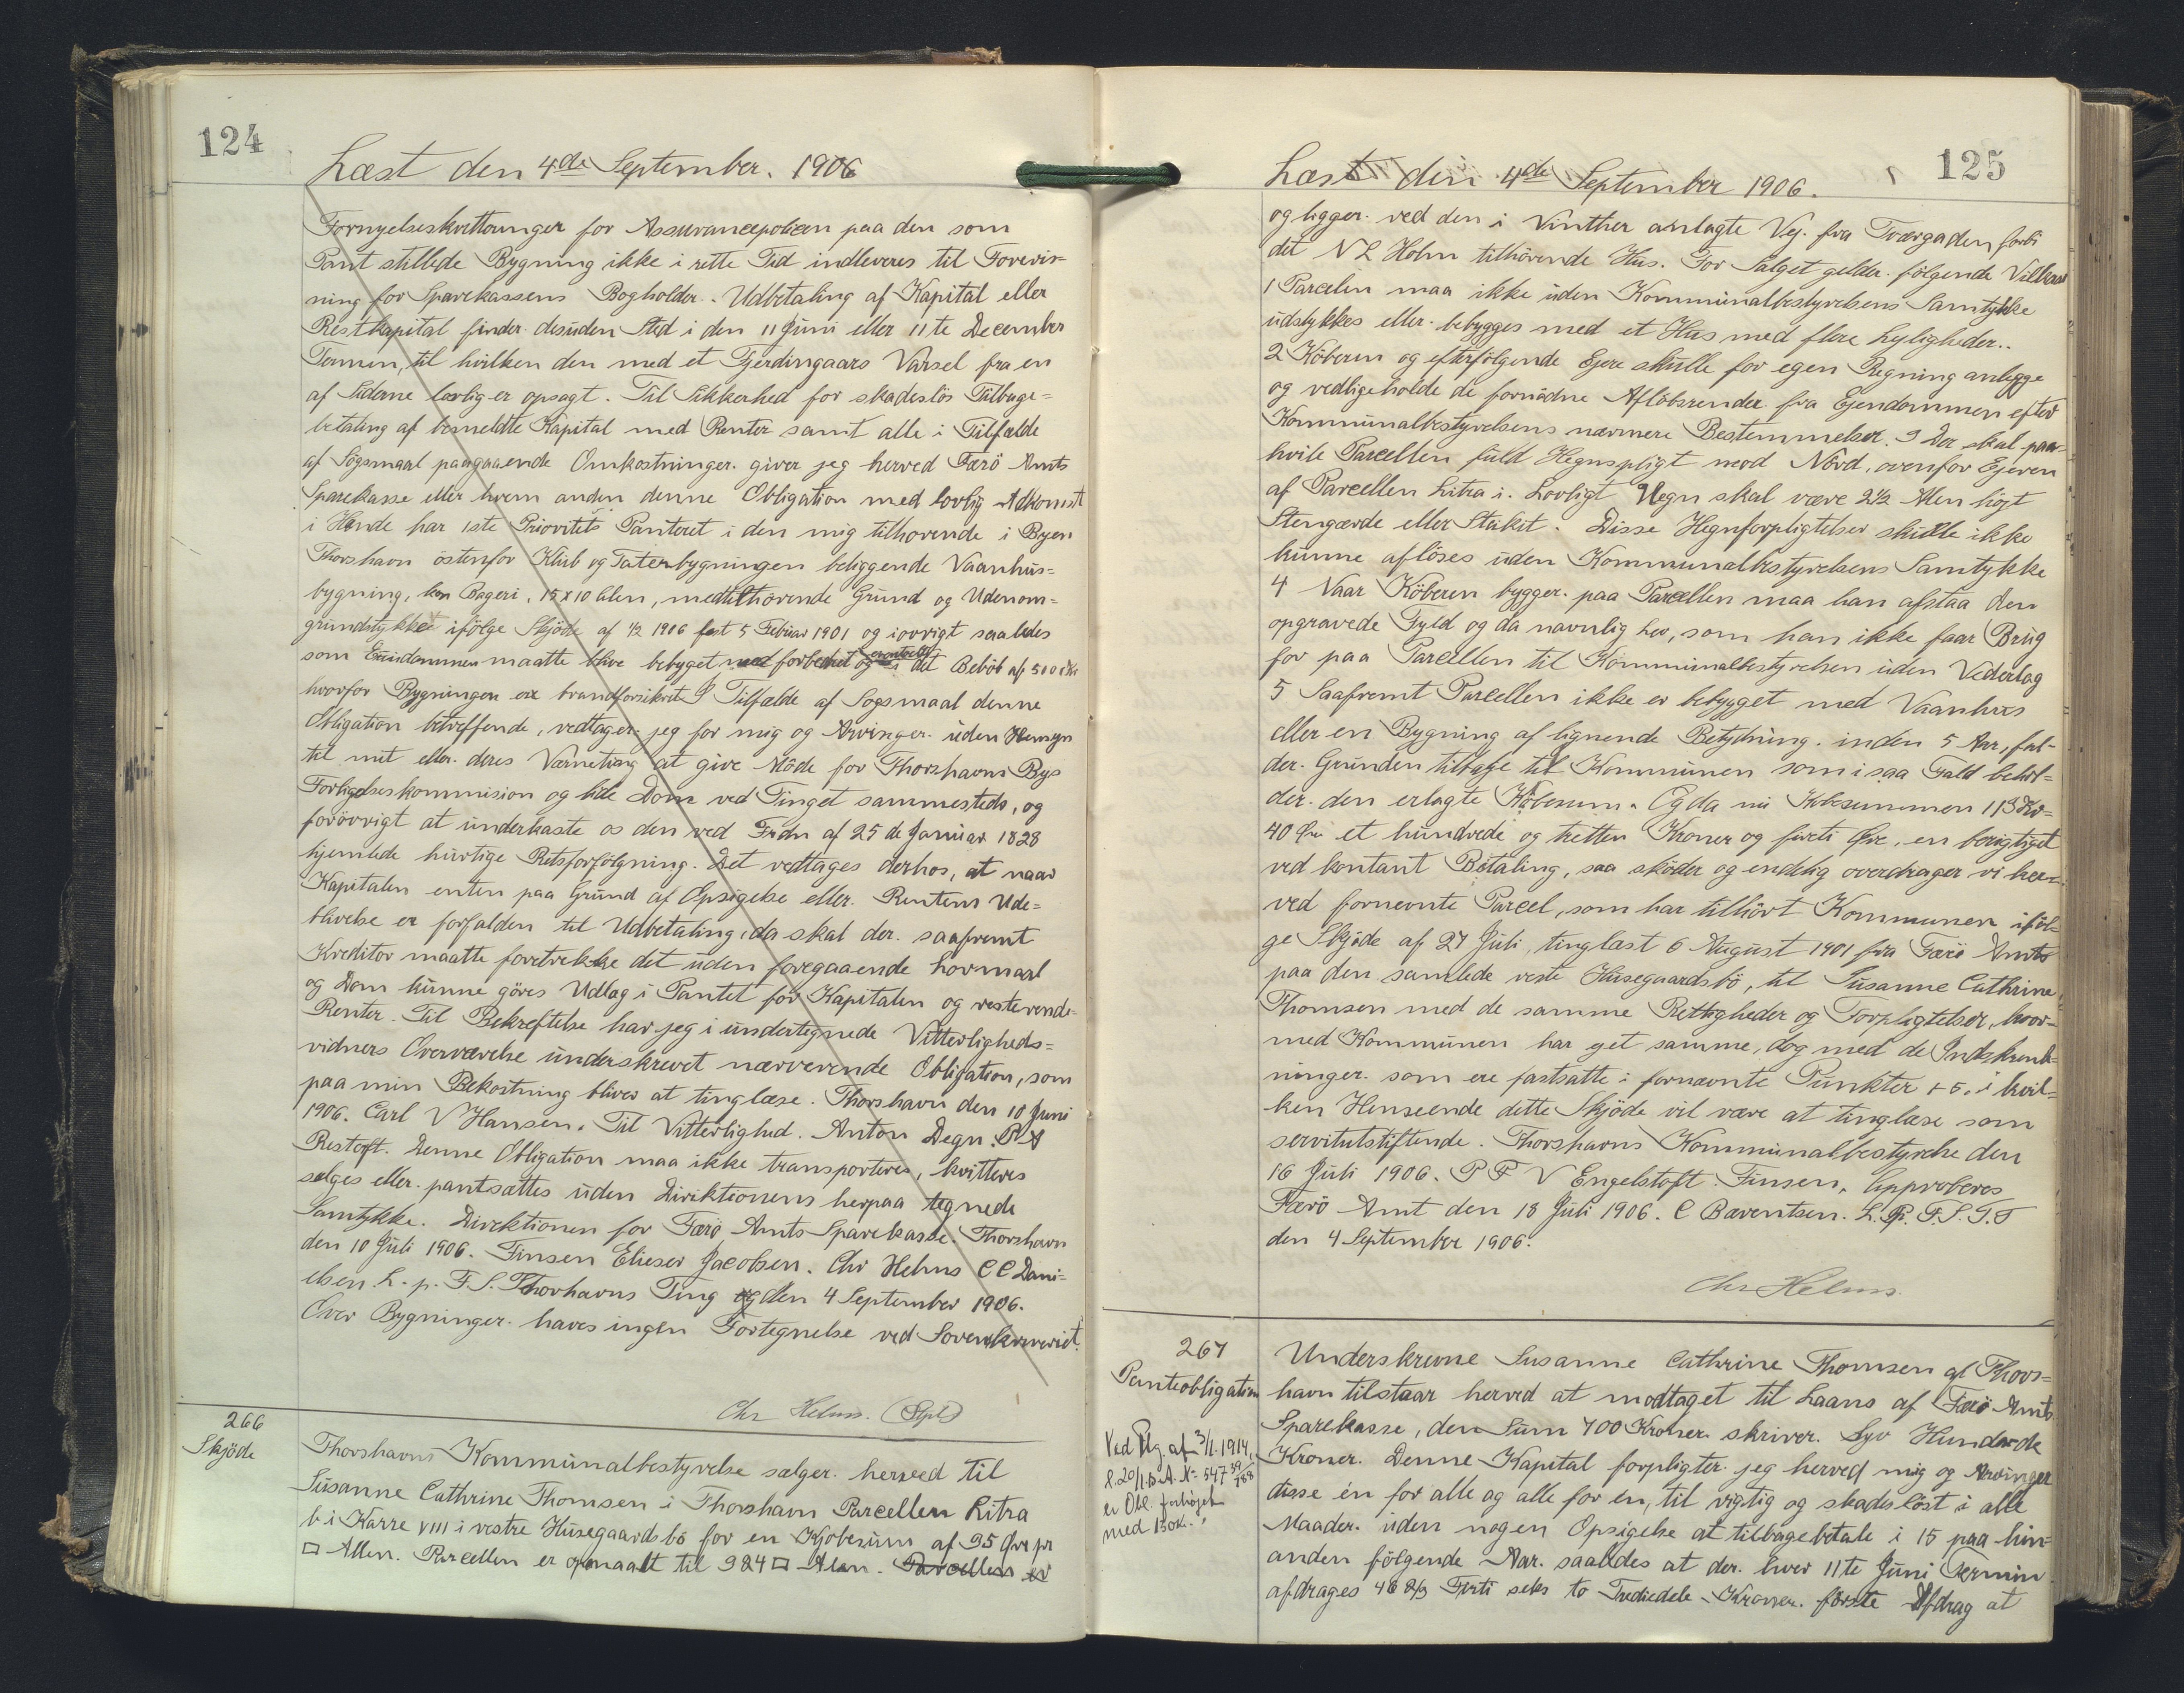 124
Læst den 4de September. 1906
Fornyelseskvitteringer for Assurancepolicen paa den som
Pant stillede Bygning ikke i rette Tid indleveres til Forevis-
ning for Sparekassens Bogholder. Udbetaling af Kapital eller
Restkapital finder desuden Sted i den 11 Juni eller 11te December
Termin, til hvilken den med et Fjerdingaars Varsel fra en
af Siderne lovlig er opsagt. Til Sikkerhed for skadeslös Tilbage=
betaling af bemeldte Kapital med Renter samt alle i Tilfælde
af Sögsmaal paagaaende Omkostninger giver jeg herved Færö Amts
Sparekasse eller hvem anden denne Obligation med lovlig Adkomst
i Hænde har 1ste Prioritets Panteret i den mig tilhorende i Byen
Thorshavn östenfor Klub og Teaterbygningen beliggende Vaanhus-
bygning, Bageri, 15x10 Alen, medtilhörende Grund og Udenom=
grundstykke ifölge Skjöde af 1/2 1906 læst 5 Februar 1901 og iovrigt saaledes
som Eiendommen maatte blive bebygget forbedret og eventuelt i det Belöb af 5000 Kr
hvorfor Bygningen er brandforsikret I Tilfælde af Sogsmaal denne
Obligation betreffende, vedtager jeg for mig og Arvinger uden Hensyn
til mit eller deres Værneting at give Möde for Thorshavns Bys
Forligelseskommision og lide Dom ved Tinget sammesteds, og
forövrigt at underkaste os den ved Frdn af 25 de Januar 1828
hjemlede hurtige Retsforfölgning. Det vedtages derhos, at naar
Kapitalen enten paa Grund af Opsigelse eller Rentens Ude=
blivelse er forfalden til Udbetaling, da skal der saafremt
Kreditor maatte foretrække det uden foregaaende Lovmaal
og Dom kunne göres Udlæg i Pantet for Kapitalen og resterende
Renter. Til Bekreftelse har jeg i undertegnede Vitterligheds=
vidners Overværelse underskrevet nærværende Obligation, som
paa min Bekostning bliver at tinglæse. Thorshavn den 10 Juni
1906. Carl V Hansen. Til Vitterlighed. Anton Degn. P A
Restoft. Denne Obligation maa ikke transporteres, kvitteres
sælges eller pantsættes uden Direktionens herpaa tegnede
Samtykke. Direktionen for Færö Amts Sparekasse. Thorshavn
den 10 Juli 1906. Finsen Elieser Jacobsen. Chr Helms C C Dani=
elsen. L. p. F. S. Thorhavns Ting den 4 September 1906.
Over Bygninger haves ingen Fortegnelse ved Sorenskriveriet.
Chr Helms. (Spl)
266
Skjöde
Thorshavns Kommunalbestyrelse sælger herved til
Susanne Cathrine Thomsen i Thorshavn Parcellen Litra
b i Karre VIII i vestre Husegaardsbö for en Kjöbesum af 35 Öre pr
□ Allen. Parcellen er opmaalt til 324 □ Alen. Parcellen er
125
Læst den 4de September 1906.
og ligger ved den i Vinther anlagte Vej fra Tværgaden forbi
det N L Holm tilhörende Hus. For Salget gelder fölgende Vilkaar
1 Parcelen maa ikke uden Kommunalbestyrelsens Samtykke
udstykkes eller bebygges med et Hus med flere Lejligheder..
2 Köberen og efterfölgende Ejere skulle for egen Regning anlegge
og vedligeholde de fornödne Aflöbsrender fra Ejendommen efter
Kommunalbestyrelsens nærmere Bestemmelser. 3 Der skal paa-
hvile Parcellen fuld Hegnspligt mod Nörd, ovenfor Ejeren
af Parcellen Litra i. Lovligt Hegn skal være 2 1/2 Alen höjt
Stengærde eller Stakit. Disse Hegnforpligtelser skulle ikke
kunne aflöses uden Kommunalbestyrelsens Samtykke
4 Naar Köberen bygger paa Parcellen maa han afstaa den
opgravede Fyld og da navnlig Ler, som han ikke faar Brug
for paa Parcellen til Kommunalbestyrelsen uden Vederlag
5 Saafremt Parcellen ikke er bebygget med Vaanhus
eller en Bygning af lignende Betydning inden 5 Aar, fal-
der Grunden tilbage til Kommunen som i saa Fald behol=
der den erlagte Köbesum. Og da nu Köbesummen 113 Kr=
40 Öre et hundrede og tretten Kroner og fireti Öre, en berigtiget
ved kontant Betaling, saa sköder og endelig overdrager vi her=
ved fornevnte Parcel, som har tilhört Kommunen iföl=
ge Skjöde af 27 Juli, tinglæst 6 August 1901 fra Færö Amts
paa den samlede veste Husegaardsbö, til Susanne Cathrine
Thomsen med de samme Rettigheder og Forpligtelser, hvor-
med Kommunen har ejet samme, dog med de Indskrenk=
ninger som ere fastsatte i fornævnte Punkter 1-5, i hvil=
ken Henseende dette Skjöde vil være at tinglæse som
servitutstiftende. Thorshavns Kommunalbestyrelse den
16 Juli 1906. P F V Engelstoft. Finsen. Approberes
Færö Amt den 18 Juli 1906. C Bærentsen. L. P. F. S. T. T
den 4 September 1906.
Chr Helms.
267
Panteobligation
Ved Plg. af 3/1. 1914,
l. 20/1. B. A. N: 547 39/788
er Obl. forhöjet
med 150 Kr.
Underskrevne Susanne Cathrine Thomsen af Thors=
havn tilstaar herved at modtaget til Laans af Færö Amts
Sparekasse, den Sum 700 Kroner skriver. Syv Hundrede
Kroner. Denne Kapital forpligter jeg herved mig og Arvinger
disse én for alle og alle for én, til rigtig og skadeslöst i alle
Maader uden nogen Opsigelse at tilbagebetale i 15 paa hin=
anden fölgende Aar. saaledes at der hver 11te Juni Termin
afdrages 46 2/3 Firti seks to Trediedele - Kroner. förste Afdrag at